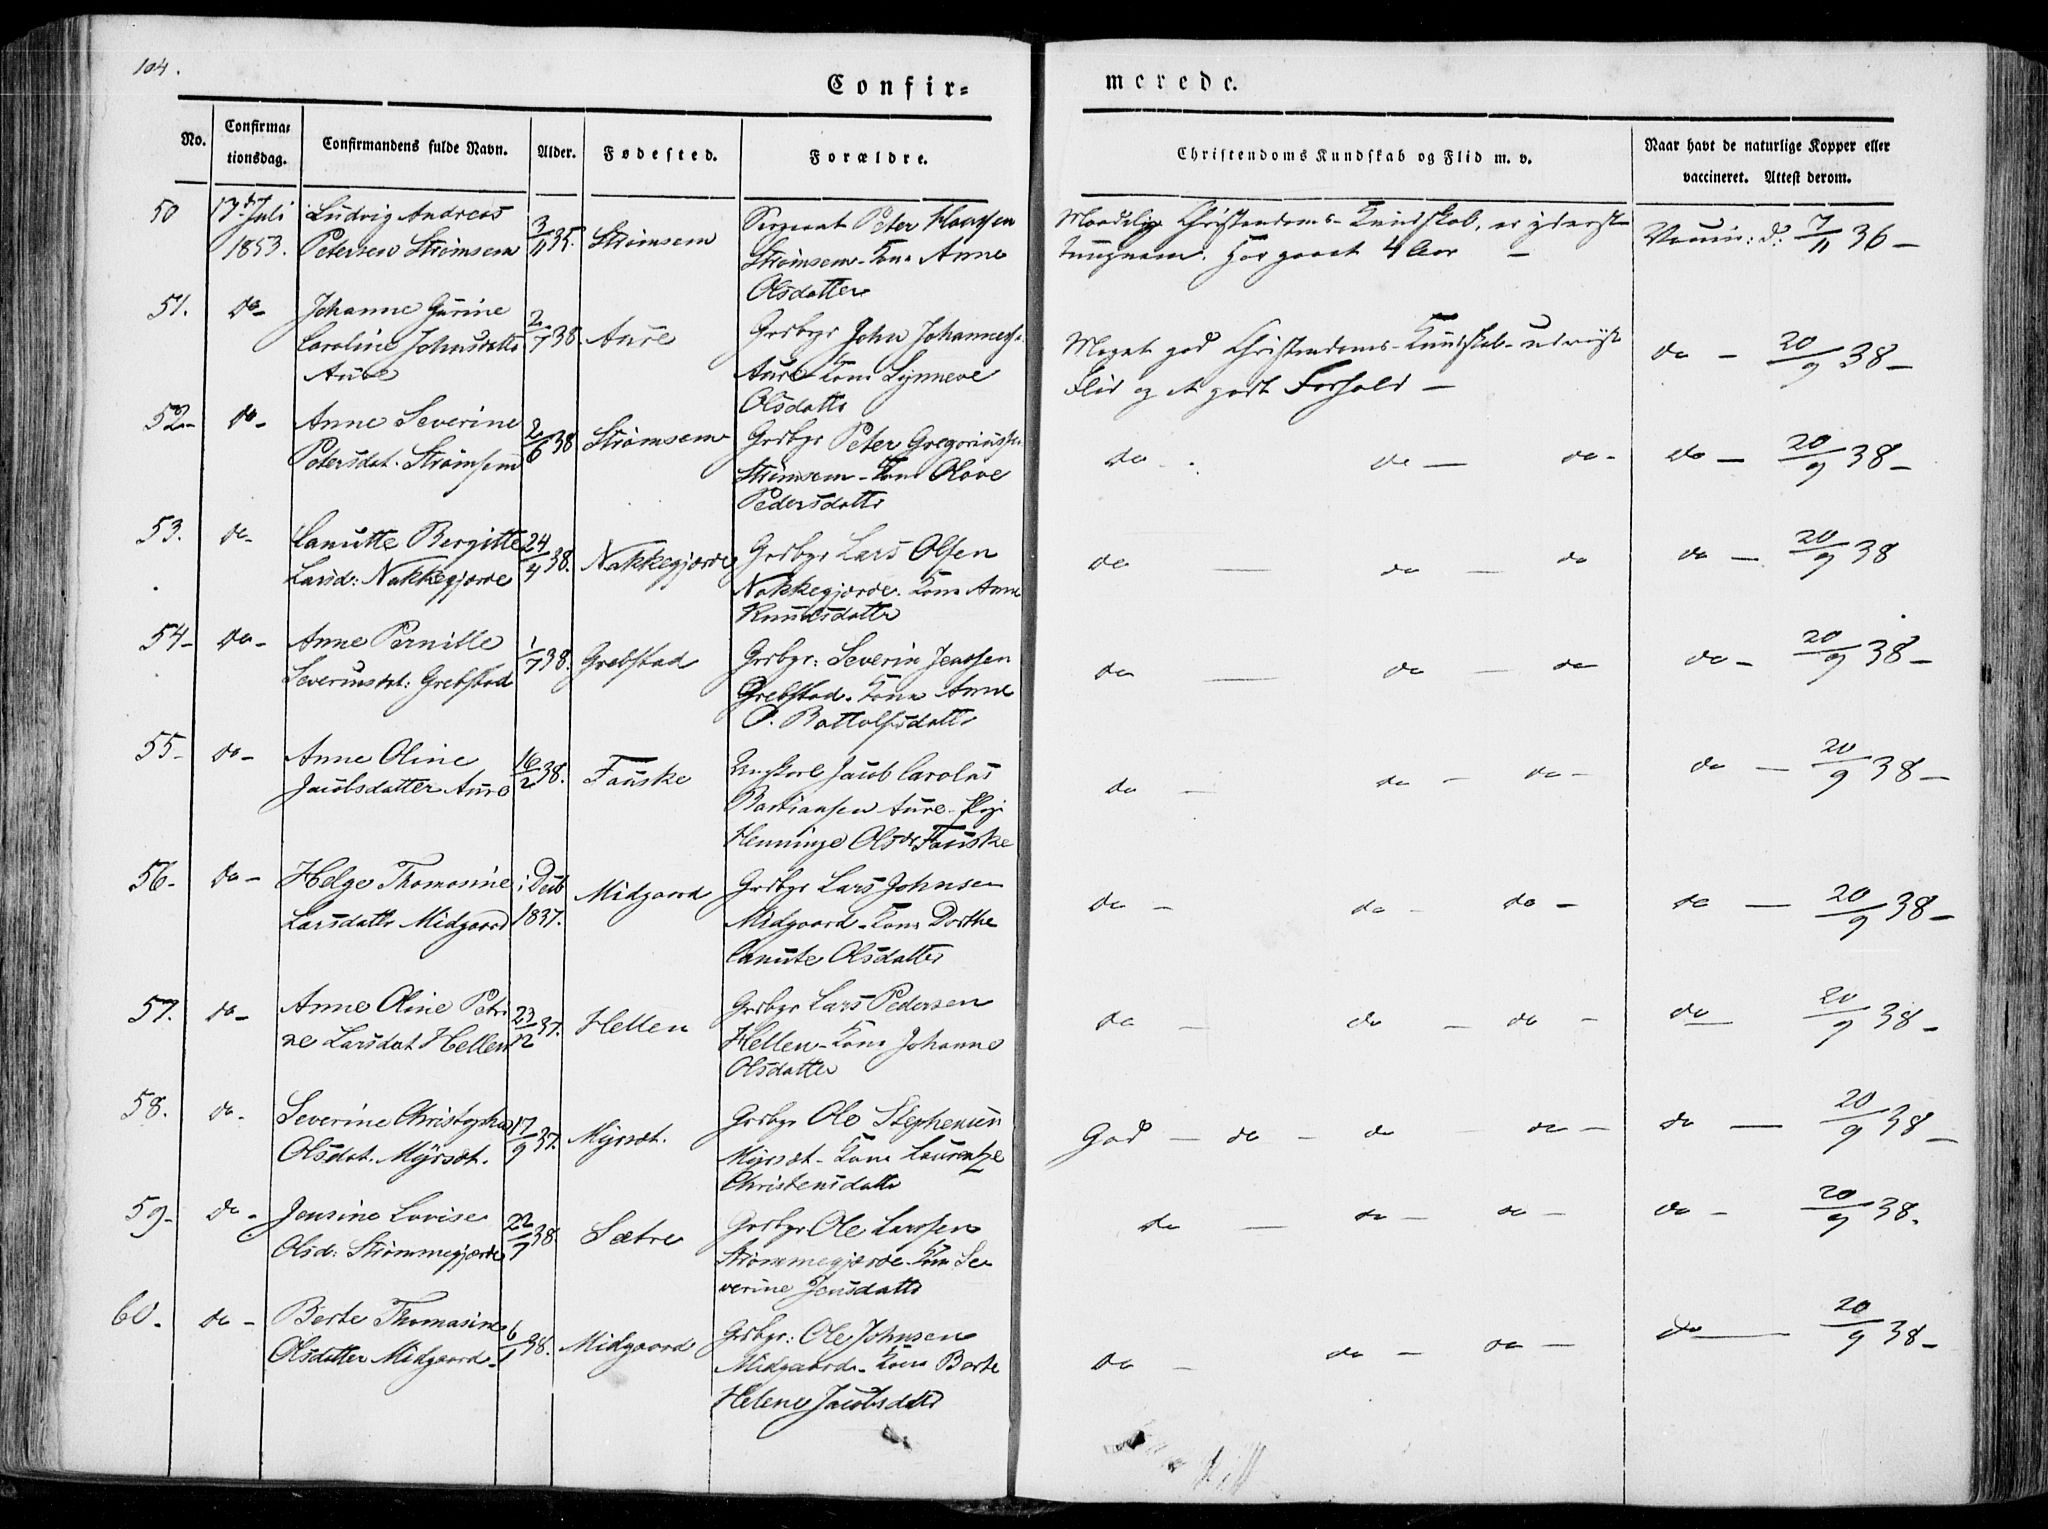 104.
Confir=
merede.
No.
Confirma=
tionsdag.
Confirmandens fulde Navn.
Alder.
Fødested.
Forældre.
Christendoms Kundskab og Flid m. v.
Naar havt de naturlige Kopper eller
vaccineret. Attest derom.
50 17de Juli Ludvig Andreas 3/11 35. Strømsem Sergeant Peter Klaussen
1853. Petersen Strømsem Strømsem - Kone Anne
Olsdatter
Maadelig Christendoms-Kundskab, er yderst
tungnem. Har gaaet 4 Aar —
Vaccin: d. 7/11 36 —
51. do- Johanne Gurine 2/7 38. Aure Grdbgr John Johanness.
Caroline Johnsdattr Aure - Kone Synneve
Aure Olsdattr
Meget god Christendoms-Kundskab - udviist
Flid og et godt Forhold —
do — 20/9 38 —
52- do- Anne Severine 2/6 38 Strømsem Grdbgr Peter Gregoriuss.
Petersdat. Strømsem Strømsem - Kone Olave
Pedersdattr
do - do — do - do — 20/9 38 —
53. do- Canutte Bergitte 24/4 38. Nakkegjærde Grdbgr Lars Olsen
Larsd: Nakkegjærde Nakkegjærde. Kone Anne
Knudsdattr
do — do — do do — 20/9 38
54- do- Anne Pernille 1/7 38. Grebstad Grdbgr: Severin Jenssen
Severinsdat: Grebstad Grebstad. Kone Anne
P. Bottolfsdattr
do — do — do do — 20/9 38 —
55- do- Anne Oline 16/2 38. Fauske Ungkarl Jacob Carolus
Jacobsdatter Aure Bastiansen Aure. Pige
Henninge Olsdr Fauske
do — do — do — do — 20/9 38 —
56- do- Helge Thomasine i Decb Midgaard Grdbgr Lars Johnsen
Larsdattr Midgaard 1837. Midgaard - Kone Dorthe
Canute Olsdatter
do — do — do — do — 20/9 38 —
57. do- Anne Oline Petri 23/12 37. Hellen Grdbgr Lars Pedersen
ne Larsdat Hellen Hellen - Kone Johanne
Olsdatter
do — do — do — do — 20/9 38 —
58. do- Severine Christopha 17/9 37. Myrsæt. Grdbgr Ole Stephensen
Olsdat. Myrsæt. Myrsæt - Kone Laurentze
Christensdattr
God — do — do — do — do — 20/9 38 —
59- do- Jensine Lovise 22/7 38. Sætre Grdbgr Ole Larssen
Olsd: Strømmegjærde Strømmegjærde - Kone Se
verine Jensdattr
do — do — do — do — 20/9 38.
60- do- Berte Thomasine 6/1 38. Midgaard Grdbgr: Ole Johnsen
Olsdatter Midgaard. Midgaard. Kone Berte
Helene Jacobsdattr
do — do — do — do — 20/9 38 —